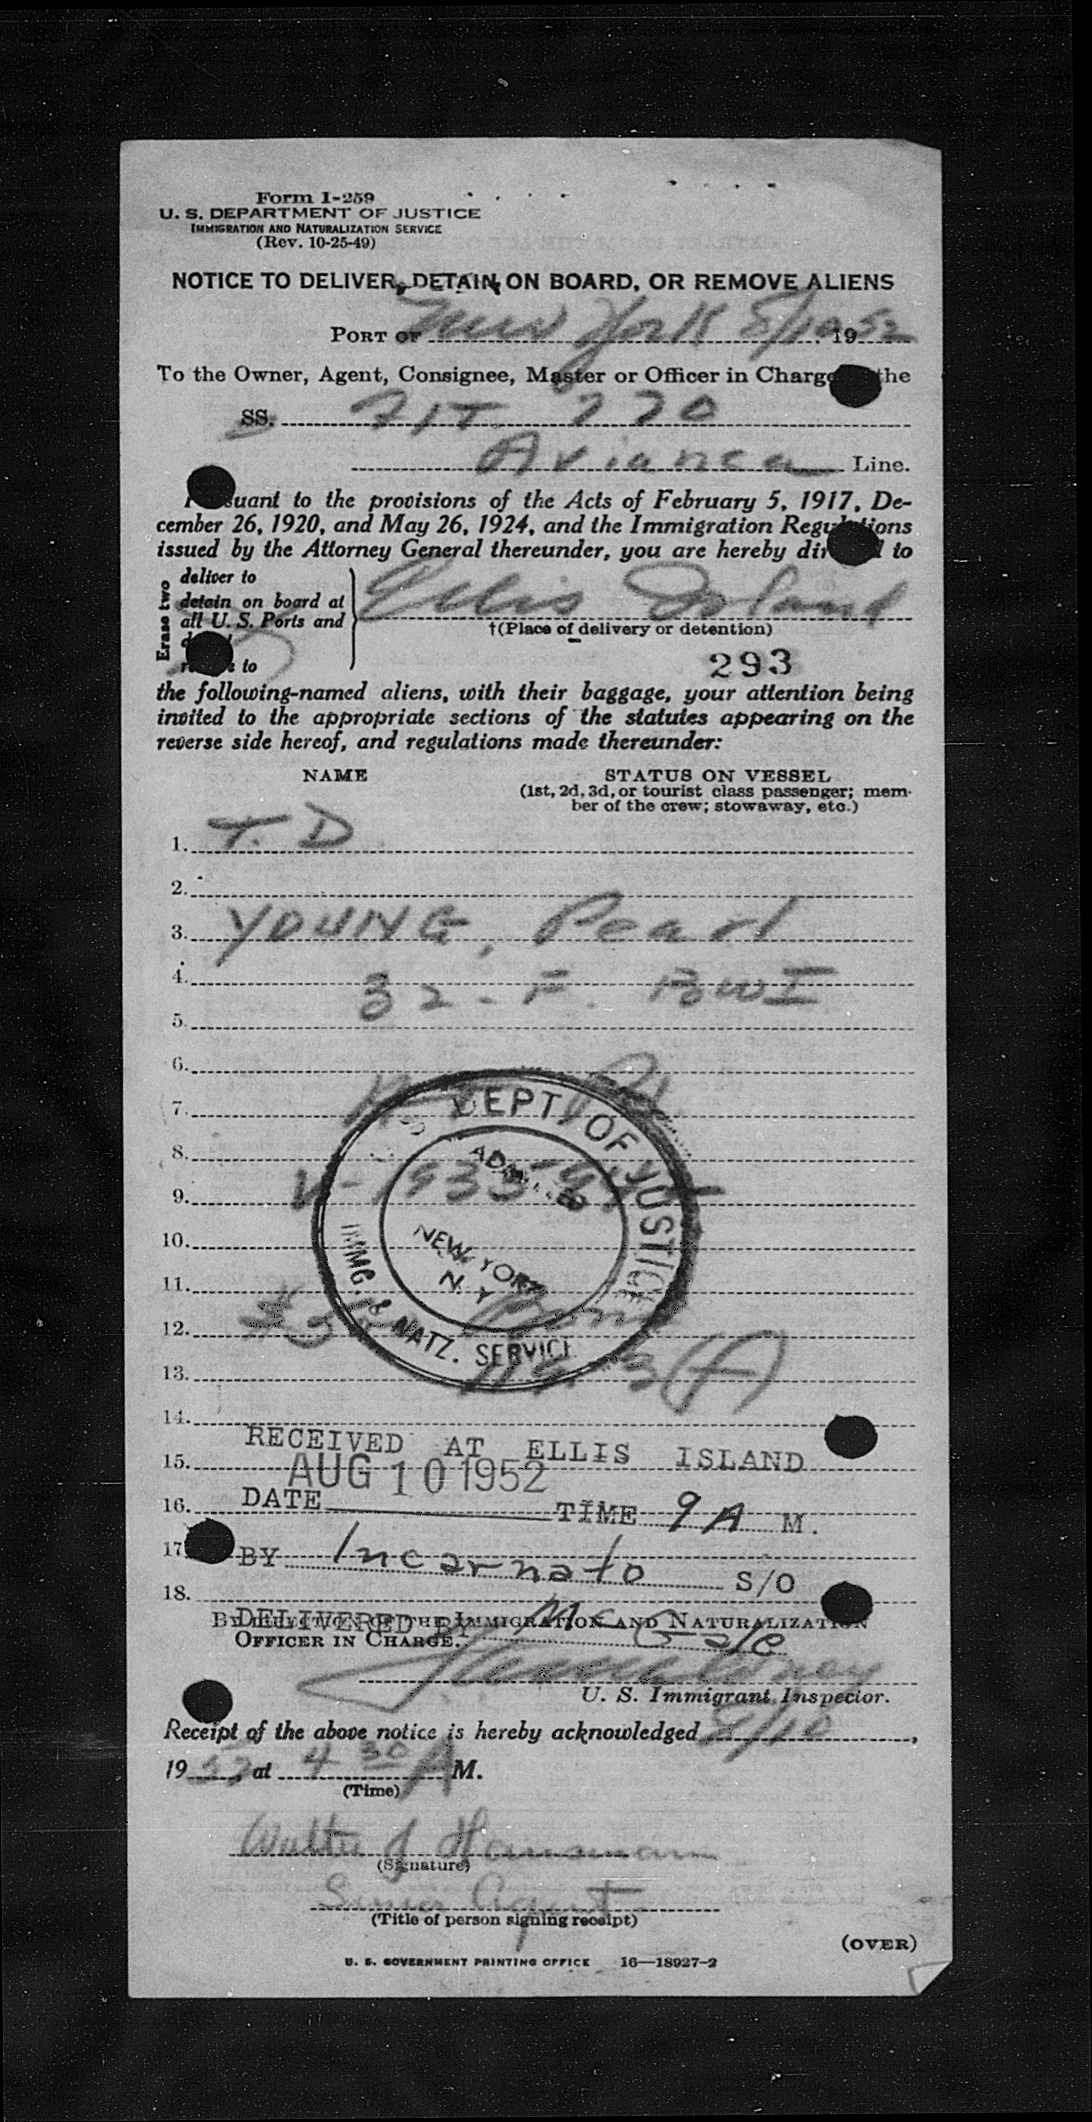 Form I-259
U. S. DEPARTMENT OF JUSTICE
IMMIGRATION AND NATURALIZATION SERVICE
(Rev. 10-25-49)
NOTICE TO DELIVER, DETAIN ON BOARD, OR REMOVE ALIENS
PORT OF New York 8/10 1952
To the Owner, Agent, Consignee, Master or Officer in Charge the
SS. FLT. 770
Avianca Line.
suant to the provisions of the Acts of February 5, 1917, De-
cember 26, 1920, and May 26, 1924, and the Immigration Regulations
issued by the Attorney General thereunder, you are hereby dir to
Erase two
deliver to
detain on board at
all U. S. Ports and
to
Ellis Island
†(Place of delivery or detention)
293
the following-named aliens, with their baggage, your attention being
invited to the appropriate sections of the statutes appearing on the
reverse side hereof, and regulations made thereunder:
NAME STATUS ON VESSEL
(1st, 2d, 3d, or tourist class passenger; mem-
ber of the crew; stowaway, etc.)
1. T. D
2.
3. YOUNG, Pearl
4. 32 - F. BWI
5.
6.
7.
8.
9.
10.
11.
12.
13. (f)
14.
DEPT. OF JUSTICE
IMMG. & NATZ. SERVICE
ADMITTED
NEW YORK
N. Y.
RECEIVED AT ELLIS ISLAND
15. AUG 10 1952
16. DATE TIME 9 A M.
17. BY Incarnato S/O
18.
DELIVERED BY
THE IMMIGRATION AND NATURALIZATION
OFFICER IN CHARGE.
U. S. Immigrant Inspector.
Receipt of the above notice is hereby acknowledged 8/10,
1952, at 4 30 A M.
(Time)
Walter J Hausmann
(Signature)
Senior Agent
(Title of person signing receipt)
(OVER)
U. S. GOVERNMENT PRINTING OFFICE 16—18927-2